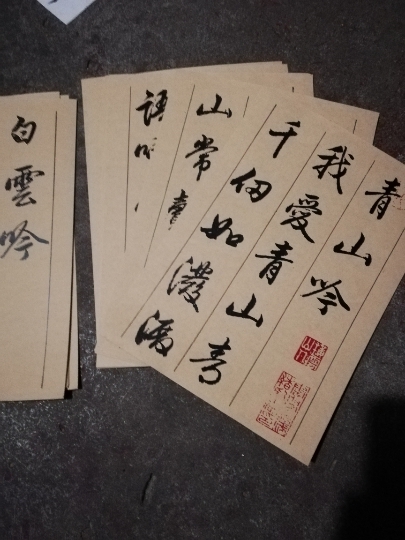 青山吟
我愛青山青
千仞如潑
山常
語
白雲吟